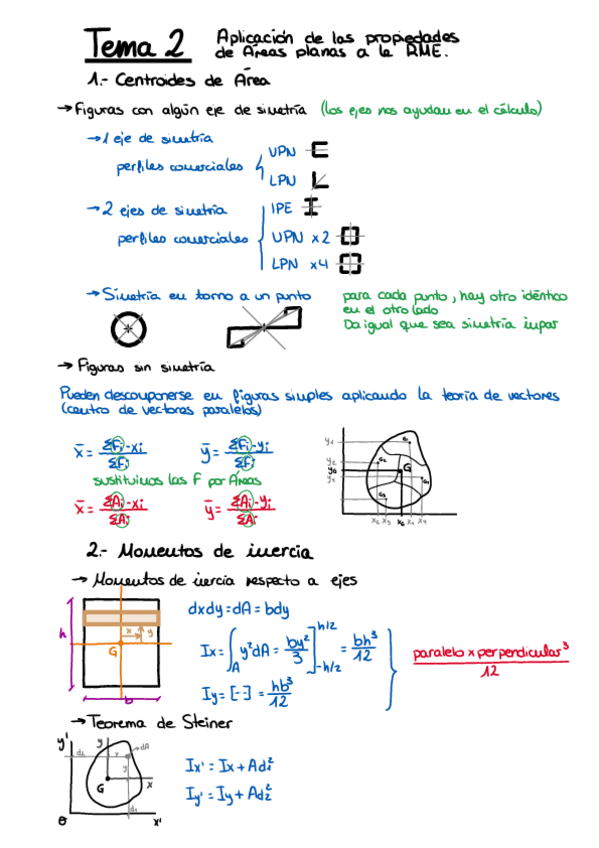 Tema 2
Aplicación de las propiedades
de Áreas planas a la RME.
1.- Centroides de Área
→ Figuras con algún eje de simetría (los ejes nos ayudan en el cálculo)
→ 1 eje de simetría
perfiles comerciales
UPN
LPN
→ 2 ejes de simetría
perfiles comerciales
IPE
UPN x2
LPN x4
→ Simetría en torno a un punto
para cada punto, hay otro idéntico
en el otro lado
Da igual que sea simetría impar
→ Figuras sin simetría
Pueden descomponerse en figuras simples aplicando la teoría de vectores
(centro de vectores paralelos)
x̄ = ΣFi·xi / ΣFi
ȳ = ΣFi·yi / ΣFi
sustituimos las F por Áreas
x̄ = ΣAi·xi / ΣAi
ȳ = ΣAi·yi / ΣAi
y1
y2
yG
G1
G2
G
G3
x2 x3 xG x1 x4
2.- Momentos de inercia
→ Momentos de inercia respecto a ejes
h
x
y
G
b
dxdy = dA = bdy
Ix = ∫A y²dA = by²/3 ]-h/2 h/2 = bh³/12
Iy = [-] = hb³/12
paralelo x perpendicular³ / 12
→ Teorema de Steiner
y' y
d2
x
dA
y
G
x
d1
θ
x'
Ix' = Ix + Ad1²
Iy' = Iy + Ad2²